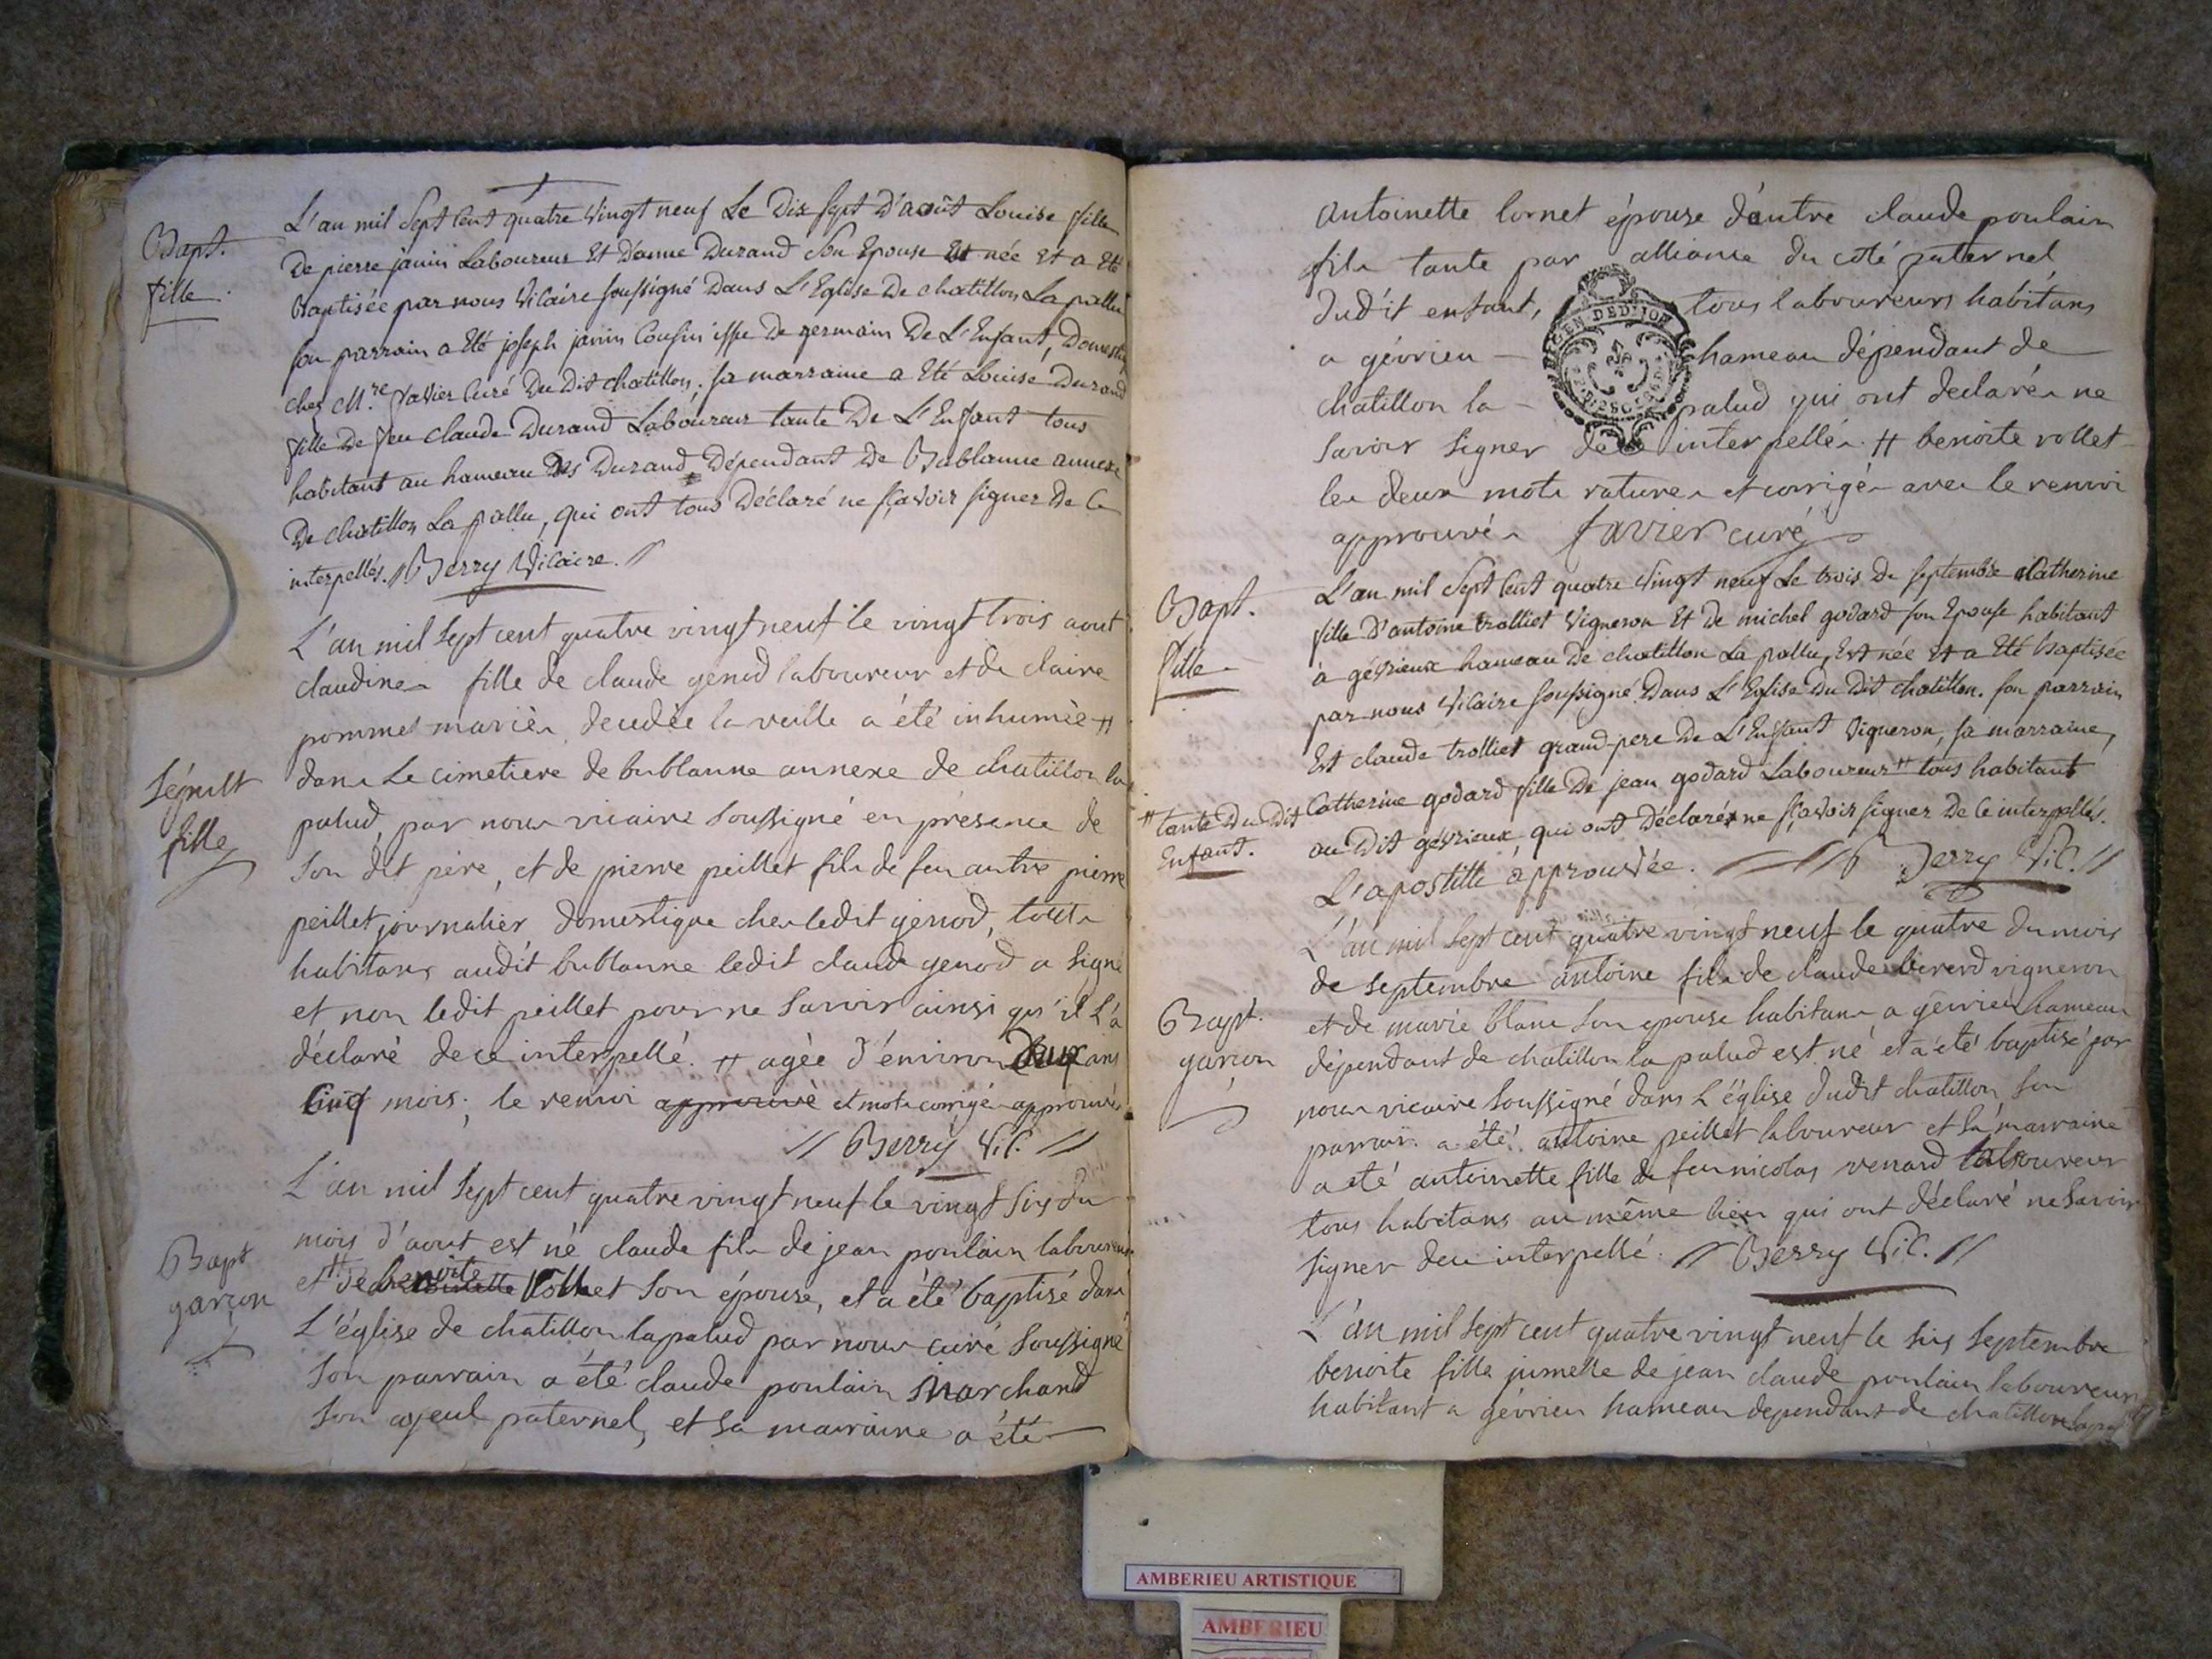 Bapt.
fille.
L'an mil Sept Cent quatre Vingt neuf Le Dix Sept D'août Louise fille
De pierre janin Laboureur Et D'anne Durand Son Epouse Est née Et a Eté
Baptisée par nous Vicaire soussigné Dans L'Eglise De chatillon La pallu
son parrain a Eté joseph janin Cousin issu De germain De L'Enfant, Domestiq
chez M.re favier Curé Du Dit chatillon. sa marraine a Eté Louise Durand
fille De feu claude Durand Laboureur tante De L'Enfant tous
habitant au hameau Des Durand Dépendant De Bublanne annexe
De chatillon La pallu, qui ont tous Déclaré ne sçavoir signer De Ce
interpellés. // Berry Vicaire. //
Sépult
fille
L'an mil sept cent quatre vingt neuf le vingt trois aout
claudine fille de claude genod laboureur et de claire
pommet mariés, decedée la veille a été inhumée #
dans Le cimetiere de bublanne annexe de chatillon la
palud, par nous vicaire soussigné en présence de
son dit père, et de pierre peillet fils de feu autre pierre
peillet journalier domestique chez ledit genod, touts
habitans audit bublanne ledit claude genod a signé
et non ledit peillet pour ne savoir ainsi qu'il l'a
déclaré de ce interpellé. # agée d'environ Deux ans
Cinq mois; le renvoi approuvé et mots corrigés approuvés
// Berry Vic. //
Bapt
garçon
L'an mil sept cent quatre vingt neuf le vingt six du
mois d'aout est né claude fils de jean poulain laboureur
et # de benoite Vollet son épouse, et a été baptisé dans
L'église de chatillon lapalud par nous curé soussigné
son parrain a été claude poulain marchand
son ayeul paternel, et sa marraine a été
antoinette lornet épouse d'autre claude poulain
fils tante par alliance du coté paternel
dudit enfant, tous laboureurs habitans
a gévrieu hameau dépendant de
chatillon la palud qui ont declarés ne
savoir signer de ce interpellés. # benoite vollet
les deux mots raturés et corrigés avec le renvoi
approuvés favier curé
GEN. DE DIJON
Bapt.
fille
L'an mil Sept Cent quatre Vingt neuf Le trois De septembre Catherine
fille D'antoine trolliet Vigneron Et De michel godard son Epouse habitant
à gévrieux hameau De chatillon La pallu, Est née Et a Eté Baptisée
par nous Vicaire soussigné Dans L'Eglise Du Dit chatillon. son parrain
Est claude trolliet grand-pere De L'Enfant Vigneron, sa marraine,
Catherine godard fille De jean godard Laboureur # tous habitant
# tante Du Dit
Enfant.
au Dit gévrieux, qui ont Déclarés ne sçavoir signer De Ce interpellés.
L'apostille approuvée. Berry Vic. //
Bapt.
garçon
L'an mil sept cent quatre vingt neuf le quatre du mois
de septembre antoine fils de claude bererd vigneron
et de marie blanc son epouse habitans a gevrieu hameau
dépendant de chatillon la palud est né et a été baptisé par
nous vicaire soussigné dans L'église dudit chatillon son
parrain a été antoine peillet laboureur et sa marraine
a été antoinette fille de feu nicolas renard laboureur
tous habitans au même lieu qui ont déclaré ne savoir
signer de ce interpellé. // Berry Vic. //
L'an mil sept cent quatre vingt neuf le six septembre
benoite fille jumelle de jean claude poulain laboureur
habitant a gévrieu hameau dependant de chatillon
AMBERIEU ARTISTIQUE
AMBERIEU